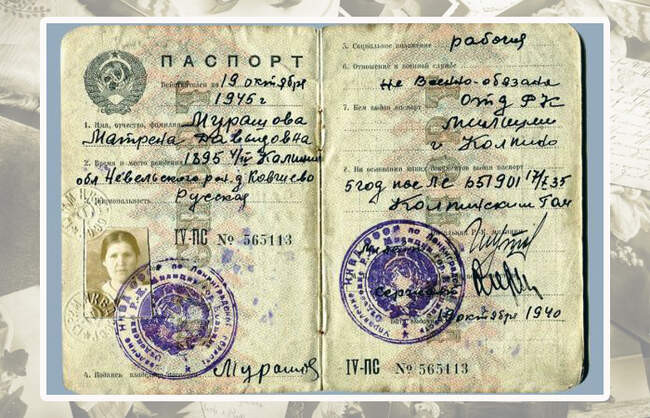 ПАСПОРТ
Действителен до 19 октября
1945 г
1. Имя, отчество, фамилия Мурашова
Матрена Давыдовна
2. Время и место рождения 1895 Калинин
обл Невельского рай. д
3. Национальность Русская
IV-ПС № 565113
4. Подпись владельца Мурашов
5. Социальное положение рабочая
6. Отношение к военной службе
не военно-обязана
7. Кем выдан паспорт Отд РК
милиции
г Колпино
8. На основании каких документов выдан паспорт
5 год пас ЛС 651901 35
Колпинским
19 октября 1940
IV-ПС № 565113